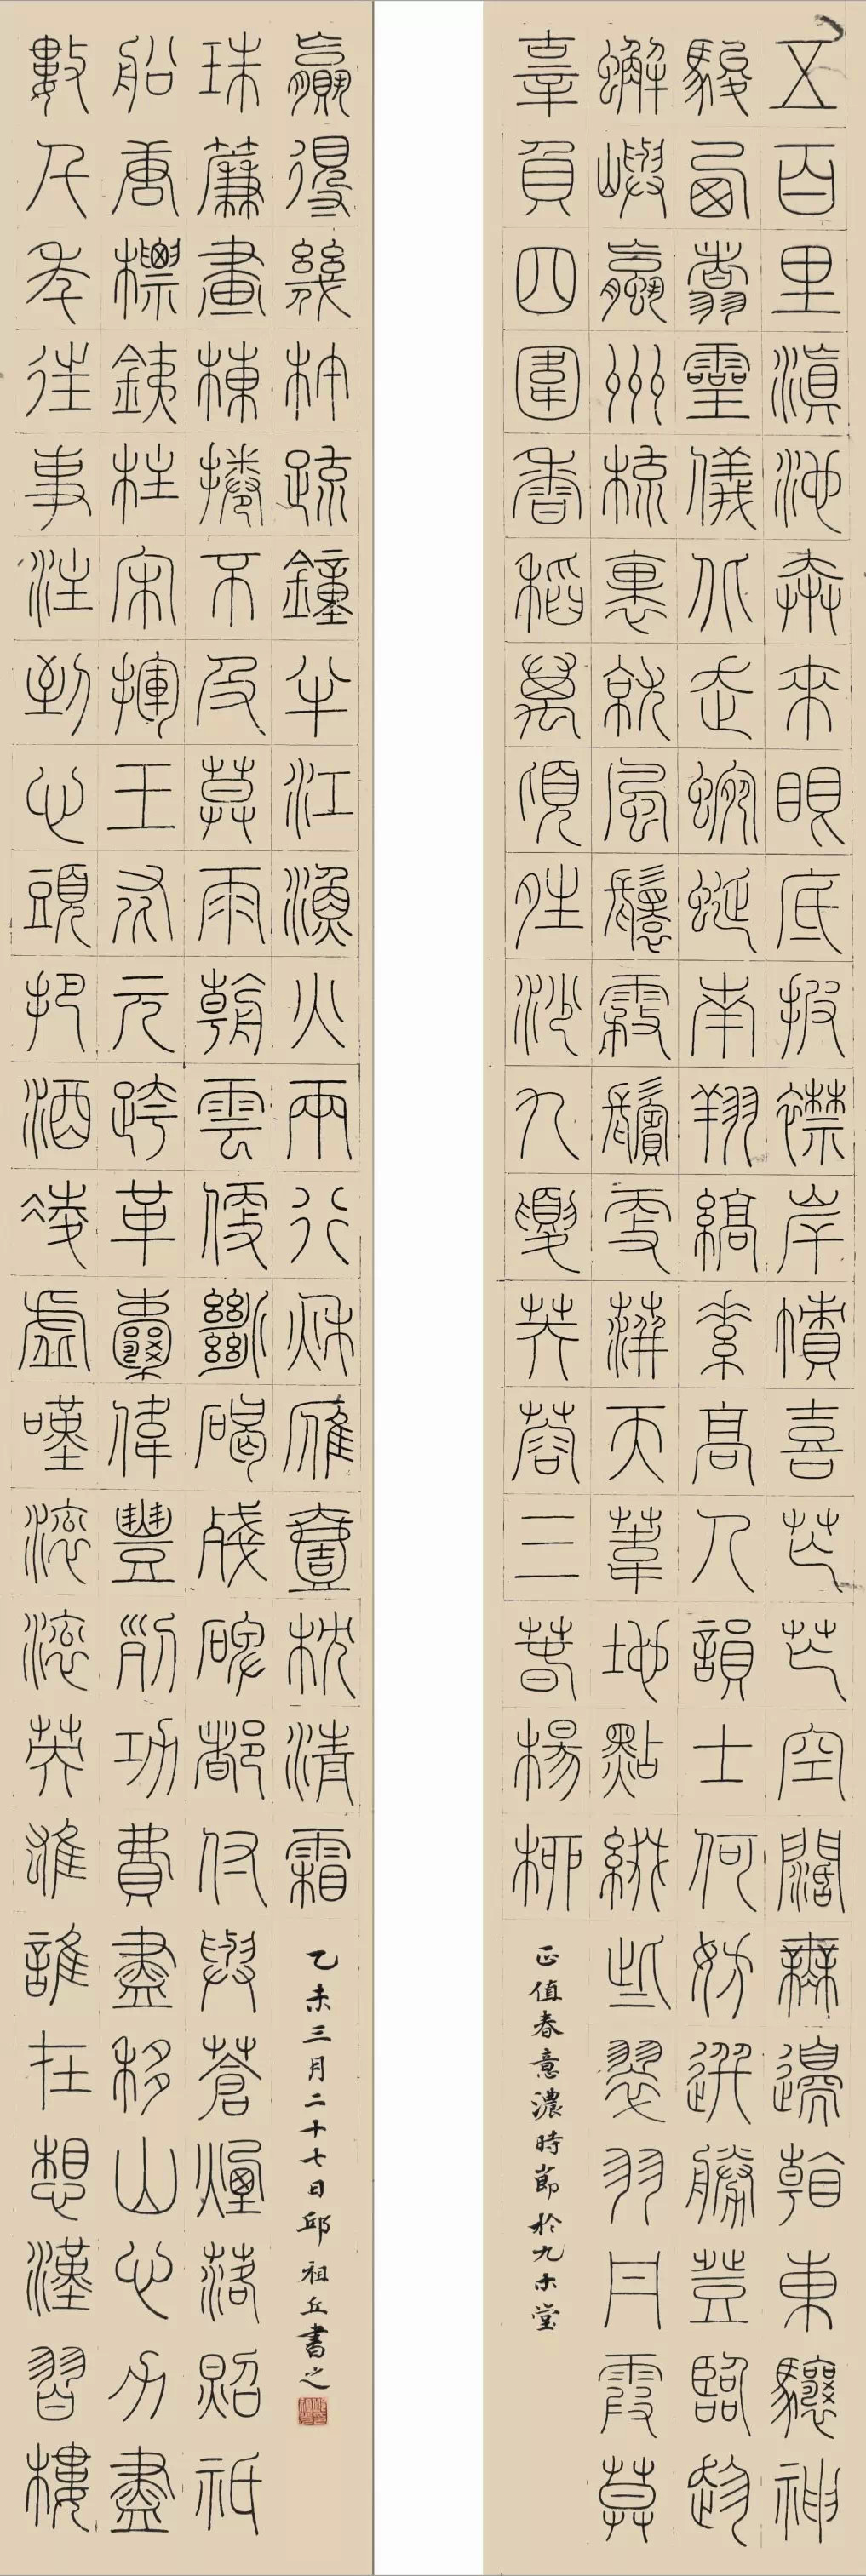 五百里滇池奔來眼底披襟岸幘喜茫茫空闊無邊看東驤神
駿西翥靈儀北走蜿蜒南翔縞素高人韻士何妨選勝登臨趁
蠏嶼蠃州梳裹就風鬟霧鬢更蘋天葦地點綴些翠羽丹霞莫
辜負四圍香稻萬頃晴沙九夏芙蓉三春楊柳
正值春意濃時節於九木堂
數千年往事注到心頭把酒凌虛嘆滾滾英雄誰在想漢習樓
船唐標鐵柱宋揮玉斧元跨革囊偉豐烈功費盡移山心力盡
珠簾畫棟捲不及暮雨朝雲便斷碣殘碑都付與蒼煙落照祇
贏得幾杵疏鐘半江漁火兩行秋雁壹枕清霜
乙未三月二十七日邱祖丘書之